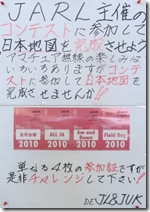 JARL主催の
コンテストに参加して
日本地図を完成させよう
アマチュア無線の楽しみは
いろいろありますがコンテ
ストに参加して日本地図を
完成させませんか!!
ALL JA
Field Day
2010 2010 2010 2010
単なる4枚の参加証ですが
是非チャレンジして下さい!!
DE JL8JUK